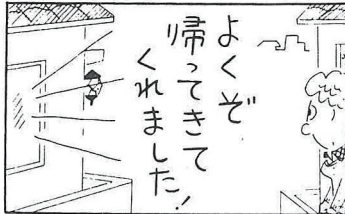 よくぞ
帰ってきて
くれました!